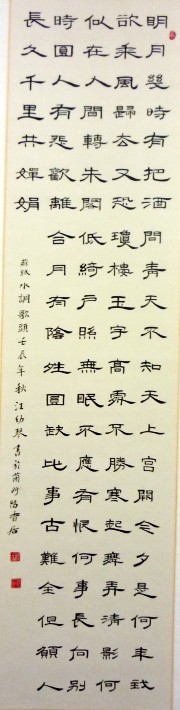 明月幾時有把酒問青天不知天上宮闕今夕是何年我
欲乘風歸去又恐瓊樓玉宇高處不勝寒起舞弄清影何
似在人間轉朱閣低綺戶照無眠不應有恨何事長向別
時圓人有悲歡離合月有陰晴圓缺此事古難全但願人
長久千里共嬋娟
蘇軾水調歌頭壬辰年秋汪幼琴書於